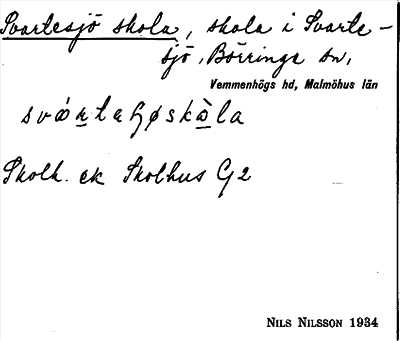 Svartesjö skola, skola i Svarte-
sjö, Börringe sn,
Vemmenhögs hd, Malmöhus län
Skolh. ek Skolhus G2
NILS NILSSON 1934